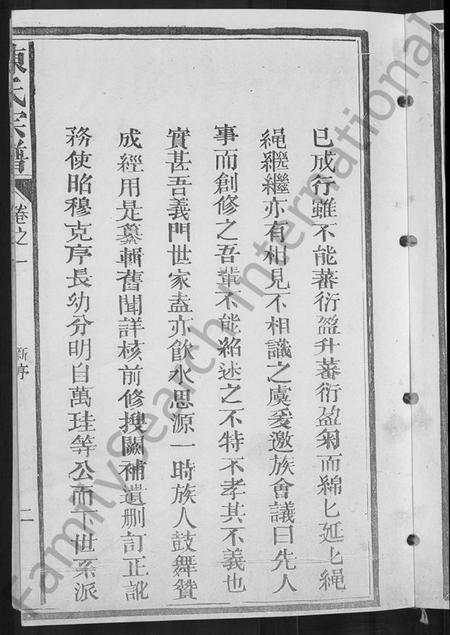 已成行雖不能蕃衍盈升蕃衍盈匊而綿匕延匕繩
繩繼繼亦有相見不相識之虞爰邀族會議曰先人
事而創修之吾輩不能紹述之不特不孝其不義也
實甚吾義門世家盍亦飲水思源一時族人鼓舞贊
成經用是纂輯舊聞詳核前修搜闕補遺刪訂正訛
務使昭穆克序長幼分明自萬珪等公而下世系派
陳氏宗譜
卷之一
新序
二
FamilySearch International